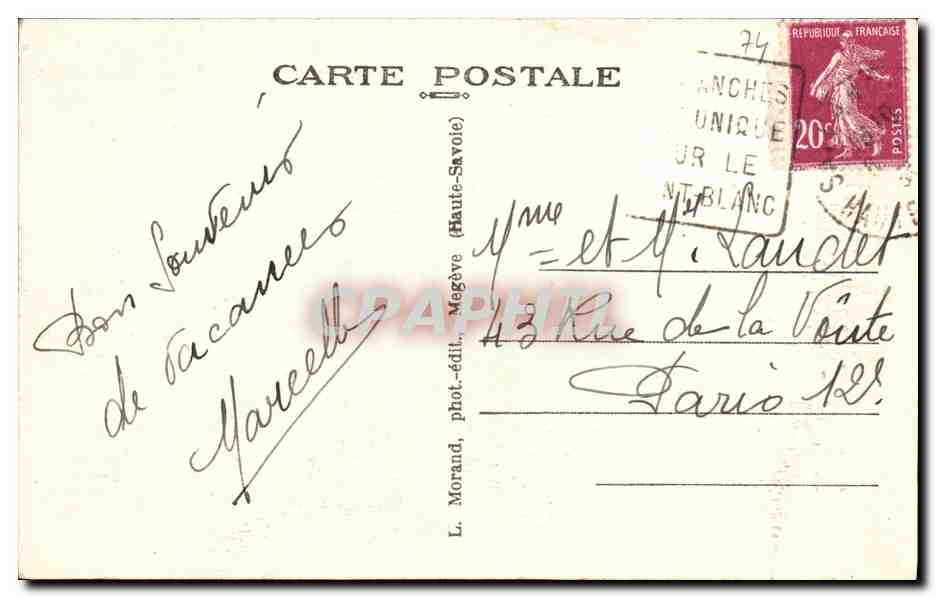 CARTE POSTALE
74
RÉPUBLIQUE FRANÇAISE
20c
POSTES
ANCHES
UNIQUE
UR LE
NT-BLANC
Bon Souvenir
de vacances
Marcelle
L. Morand, phot.-édit., Megève (Haute-Savoie)
Mme et Mr Laudet
43 Rue de la Voûte
Paris 12e
CPAPHIL